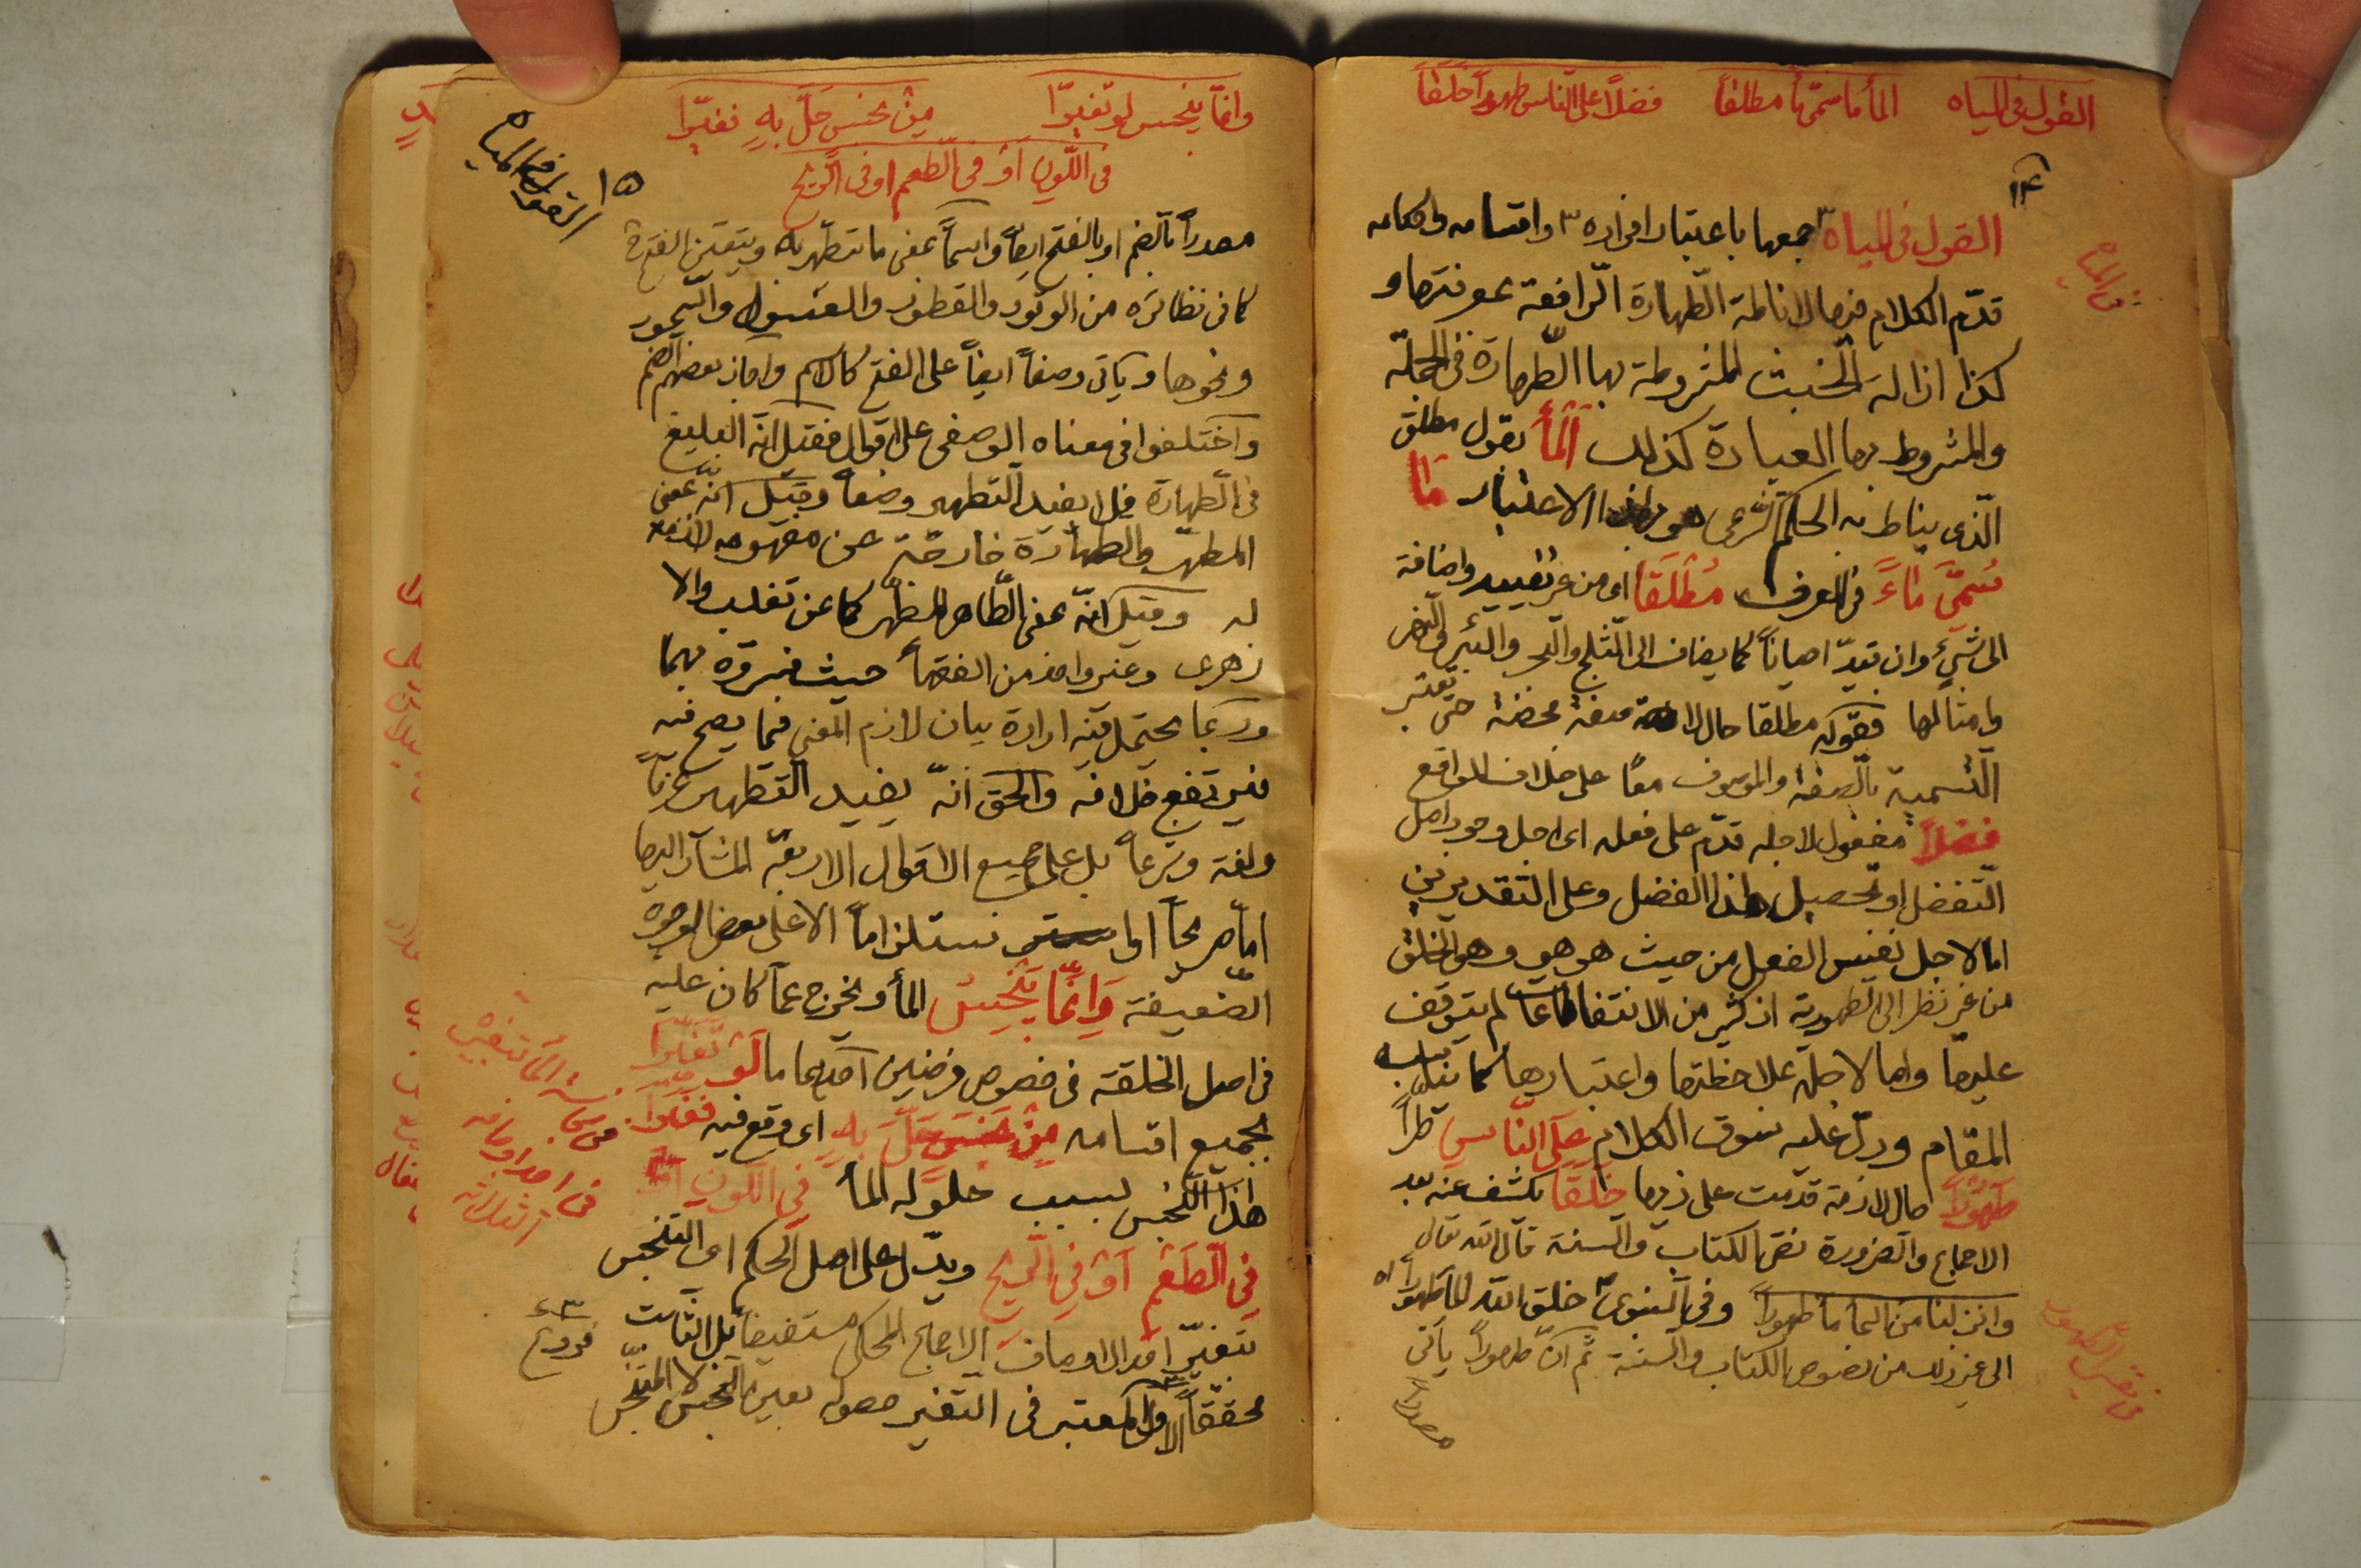 القول في المياه   الماء ما سمّي ماء مطلقاً   فضلاً على الناس طهوراً خلقا
١٤
في المياه
القول في المياه جمعها باعتبار افراده واقسامه واحكامه
قدّم الكلام فيها لاناطة الطّهارة الرّافعة بمعرفتها و
كذا ازالة الخبث المشروطة بها الطّهارة في الجملة
والمشروط بها العبادة كذلك الماء بقول مطلق
الّذي يناط به الحكم الشرعي هو بهذا الاعتبار ما
سُمّي ماءً في العرف مُطلَقاً اى من غير تقييد واضافة
الى شيء وان قيّد احياناً كما يضاف الى الثلج والبحر والبئر
وامثالها فقوله مطلقا حال لا صفة محضة حتى تعتبر
التّسمية بالصفة والموصوف معًا على خلاف الواقع
فضلاً مفعول لاجله قدّم على فعله اى اجل وجود اصل
التّفضل او تحصيل هذا الفضل وعلى التقديرين
امّا لاجل نفس الفعل من حيث هو هو وهو الخلق
من غير نظر الى الطهورية اذ كثير من الانتفاعات لم يتوقف
عليها واما لاجله بملاحظتها واعتبارها كما يناسبه
المقام ودلّ عليه سوق الكلام على النّاس طرّاً
طهوراً حال لازمة قدّمت على ذيها خلقا يكشف عنه بعد
الاجماع والضرورة نصّ الكتاب والسنة قال الله تعالى
وانزلنا من السماء ماء طهوراً وفي النبوي خلق الله الماء طهوراً اه
الى غير ذلك من نصوص الكتاب والسنة ثم انّ طهوراً يأتي
مصدراً
وانّما ينجس لو تغيّرا   مِن نجس حلّ بهِ تغيّرا
في اللّون او في الطّعم او في الرّيح
١٥
القول في المياه
مصدراً بالضم او بالفتح ايضاً واسماً بمعنى ما يتطهّر به ويتعيّن الفتح
كما في نظائره من الوقود والفطور والغسول والسّحور
ونحوها ويأتي وصفاً ايضاً على الفتح كالاسم واجاز بعضهم الضم
واختلفوا في معناه الوصفي على اقوال فقيل انّه البليغ
في الطّهارة فلا يفيد التطهير وضعاً وقيل انّه بمعنى
المطهّر والطهارة خارجة عن مفهومه لازمة
له وقيل انّه بمعنى الطّاهر المطهّر كما عن تغلب والا
زهرى وغير واحد من الفقهاء حيث فسّروه بهما
وربما يحتمل فيه ارادة بيان لازم المعنى فيما يصح فيه
فيرتفع خلافه والحق انّه يفيد التطهير عرفاً
ولغة وشرعاً بل على جميع الاقوال الاربعة المشار اليها
امّا صريحاً او استلزاماً الا على بعض الوجوه
الضّعيفة وَانّما يَنجس الماء ويخرج عمّا كان عليه
في اصل الخلقة في خصوص فرضين احدهما ما لَو تغيّرا
بجميع اقسامه مِن نجس حَلَّ بِهِ اى وقع فيه تغيّرا
هذا النّجس لسبب حلوله الماء في اللّون اَو
في الطَعم اَو في الرّيح ويدلّ على اصل الحكم اى التنجّس
بتغيّر احد الاوصاف الاجماع المحكى مستفيضاً بل الثابت
محققاً الاوّل المعتبر في التغير حصوله بعين النّجس لا المتنجّس
فروع